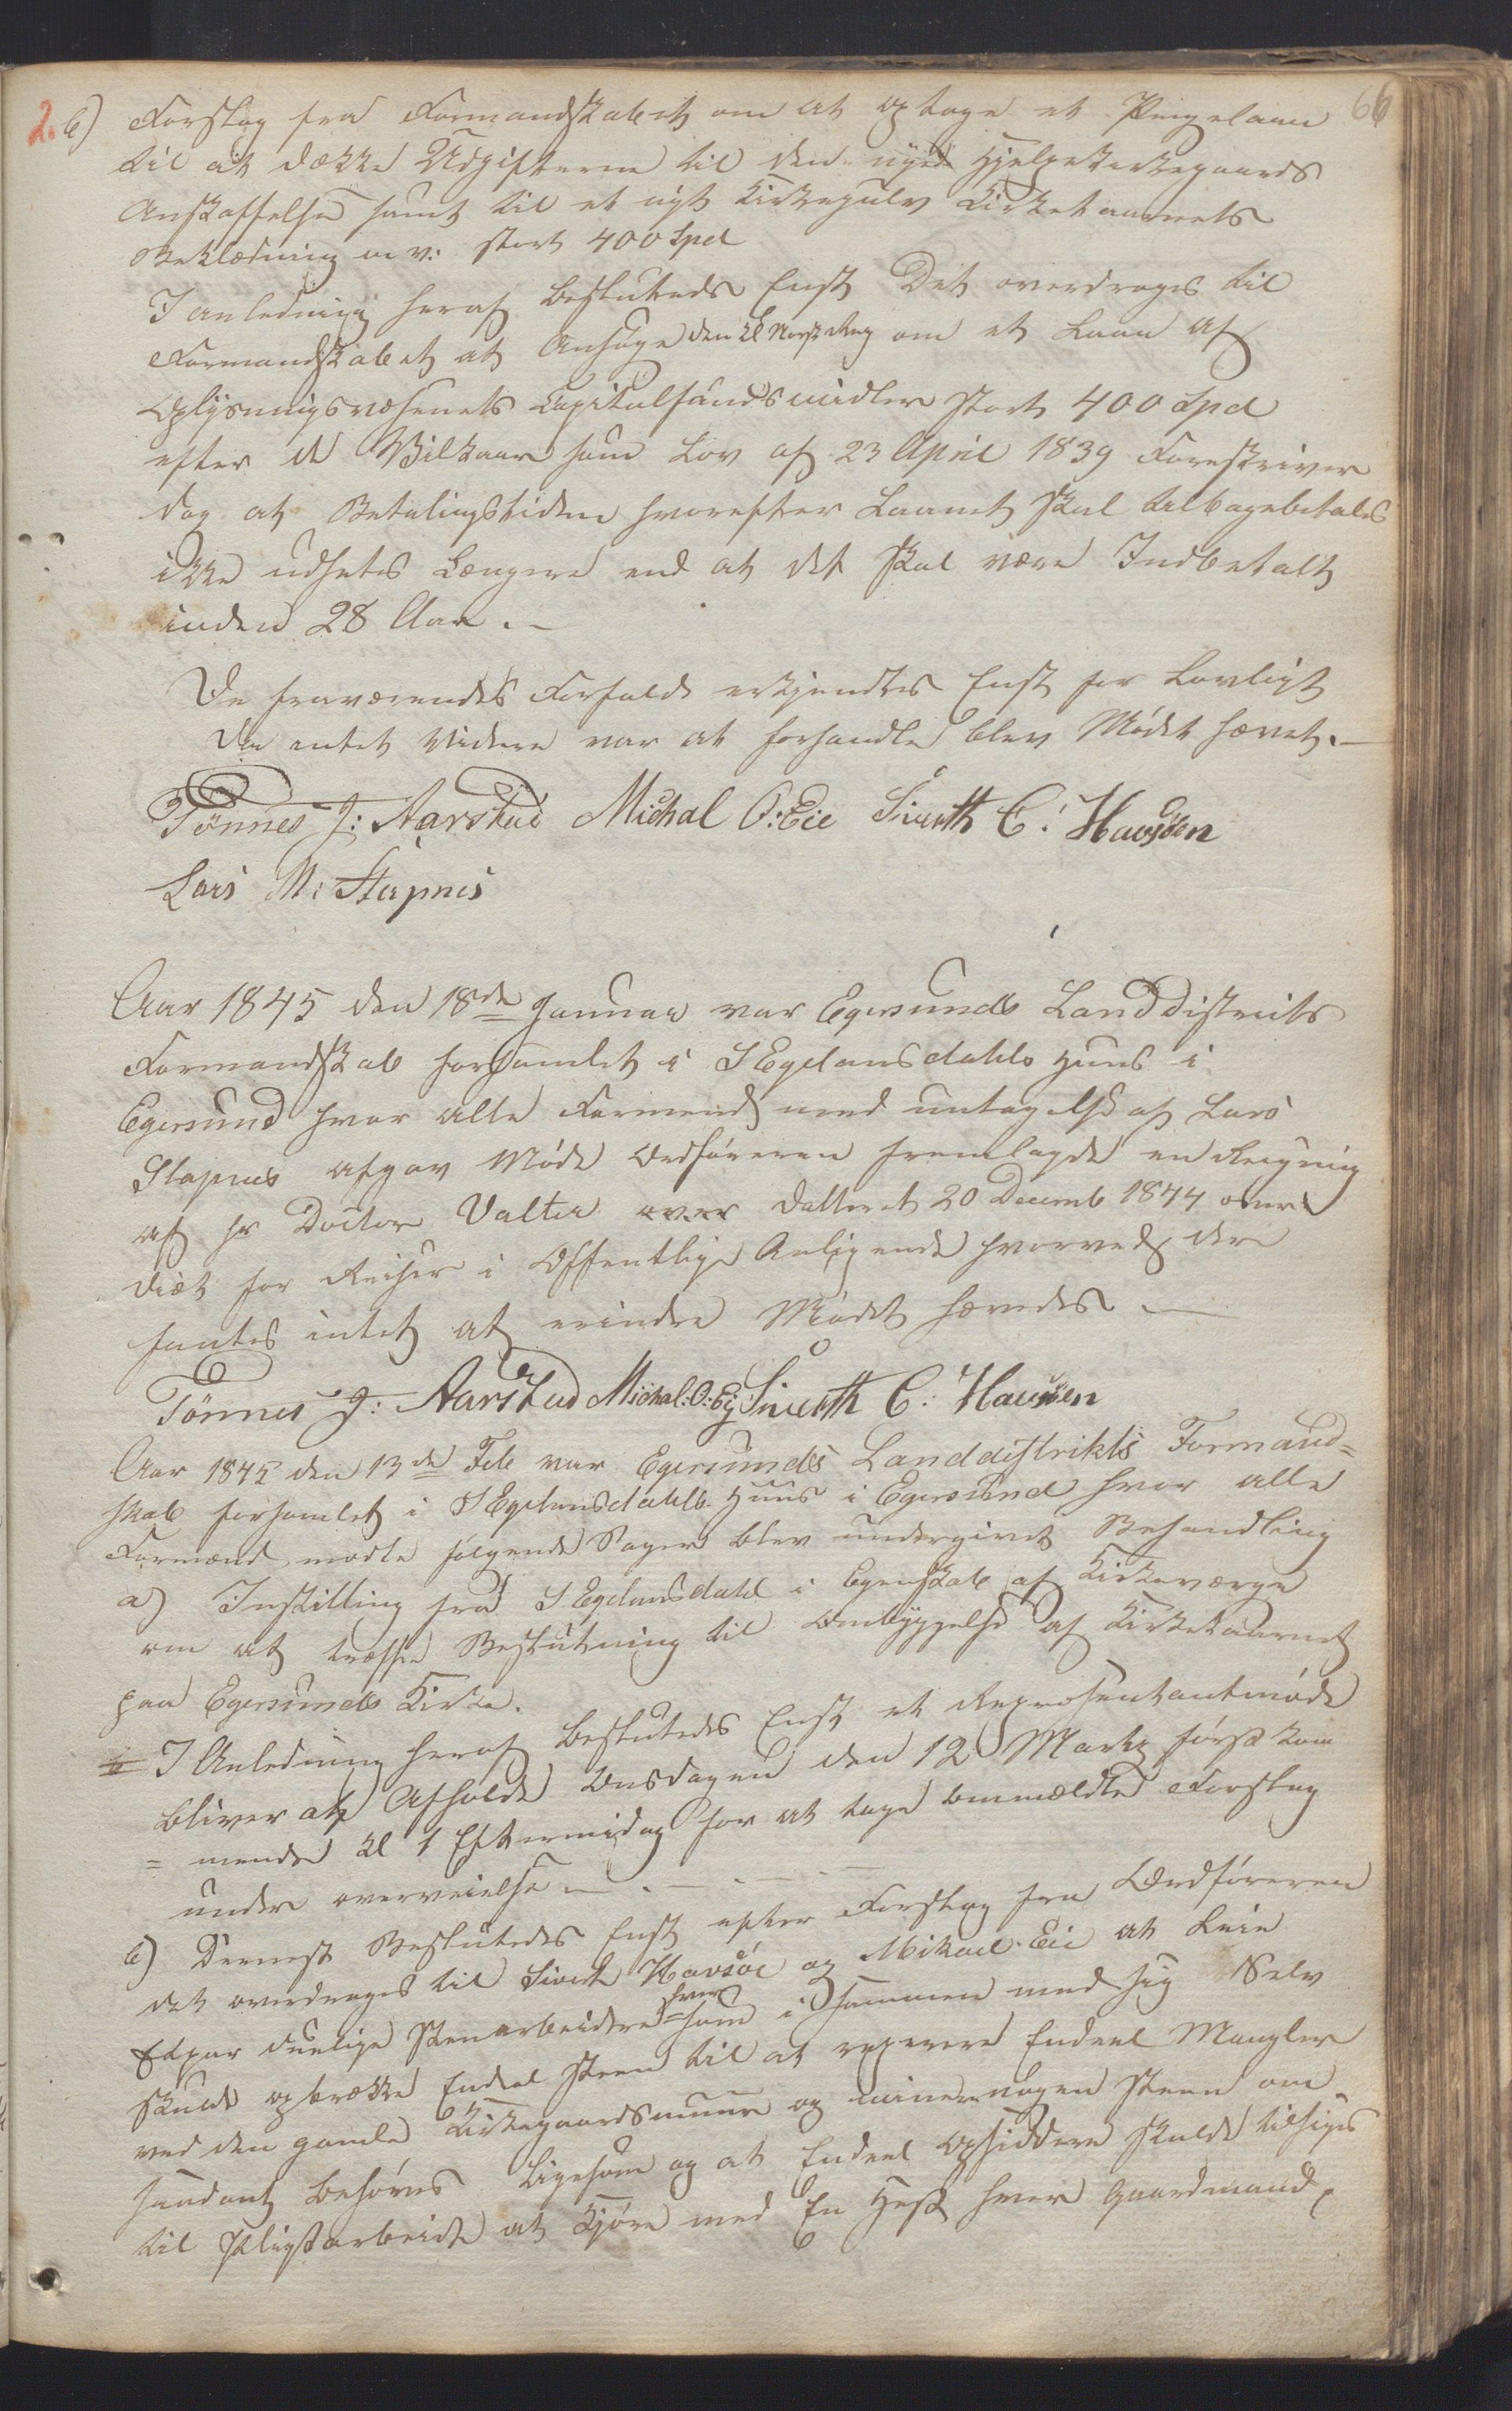 66
2. b) Forslag fra Formandskabet om at optage et Pengelaan
til at dække Udgifterne til den nye Hjelpekirkegaards
Anskaffelse samt til et nyt Kirkegulv Kirketaarnets
Beklædning m v: stort 400 Spd
I anledning heraf besluttedes Enst Det overdroges til
Formandskabet at Ansøge den Kl Norske Reg om et Laan af
Oplysningsvæsenets Capitalfondsmidler stort 400 Spd
efter de Vilkaar som Lov af 23 April 1839 Foreskriver
dog at Betalingstiden hvorefter Laanet skal tilbagebetales
ikke udsetes Længere end at det skal være Indbetalt
inden 28 Aar. —
De fraværendes Forfald erkjendtes Enst for Lovligt
Da intet videre var at forhandle blev Mødet hævet. —
Tønnes J: Aarstad Michal O: Eie Siverth C: Havsøen
Lars M: Stapnes
Aar 1845 den 18de Januar var Egersunds Landdistricts
Formandskab forsamlet i S Egelansdahls Huus i
Egersund hvor alle Formend med untagelse af Lars
Stapnes afgav Møde Ordføreren fremlagde en Regning
af hr Doctor Valter over datteret 20 Decemb 1844 over
diæt for Reiser i Offentlige Anligende hvorved der
fantes intet at erindre Mødet hævedes —
Tønnes J: Aarstad Michal: O: Eij Siverth C: Havsøen
Aar 1845 den 13de Feb var Egersunds Landdistrikts Formand=
skab forsamlet i S Egelansdahls Huus i Egersund hvor alle
Formænd mødte følgende Sager blev undergivet Behandling
a) Instilling fra S Egelansdahl i Egenskab af Kirkeværge
om at træffe Beslutning til Ombyggelse af Kirketaarnet
paa Egersunds Kirke.
I Anledning heraf besluttedes Enst et Representantmøde
bliver at Afholde Onsdagen den 12 Marts førstkom
= mende Kl 1 Eftermidag for at tage ommældte Forslag
under overveielse — . — . —
b) Dernest Besluttedes Enst efter Forslag fra Ordføreren
det overdroges til Siverth Havsøe og Mikael Eie at Leie
Etpar duelige Stenarbeidere hver som i sammen med sig Selv
skulde opbrække Endeel Steen til at reparere Endeel Mangler
ved den gamle Kirkegaardsmuur og minere nogen Steen om
saadant behøves Ligesom og at Endeel Opsiddere skulde tilsiges
til Pligtarbeide at Kjøre med En Hest hver Gaardmand